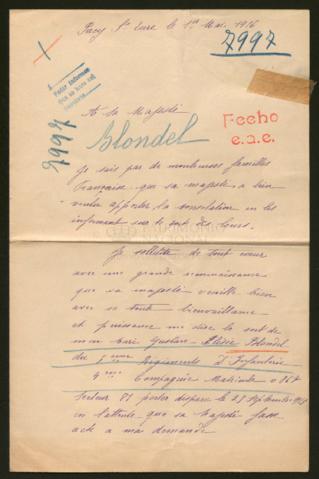 Pacy S/ Eure le 1er Mai 1916
7997
Pedir informes
7997
A sa Majesté
Blondel
Fecho
e.a.e.
Je sais par de nombreuses familles
française que sa majesté a bien
voulu apporter la consolation en les
informant sur le sort des leurs.
PATRIMONIO
NACIONAL
Je sollicite de tout cœur
avec une grande reconnaissance
que sa majesté veuille bien
avec sa toute bienveillante
et puissance me dire le sort de
mon mari Gustave Elisée Blondel
du Régiments D'Infanterie
9eme Compagnie Matricule
Secteur 81 portés disparu le 25 Septembre 1915
en l'attente que sa Majesté fasse
à ma demande